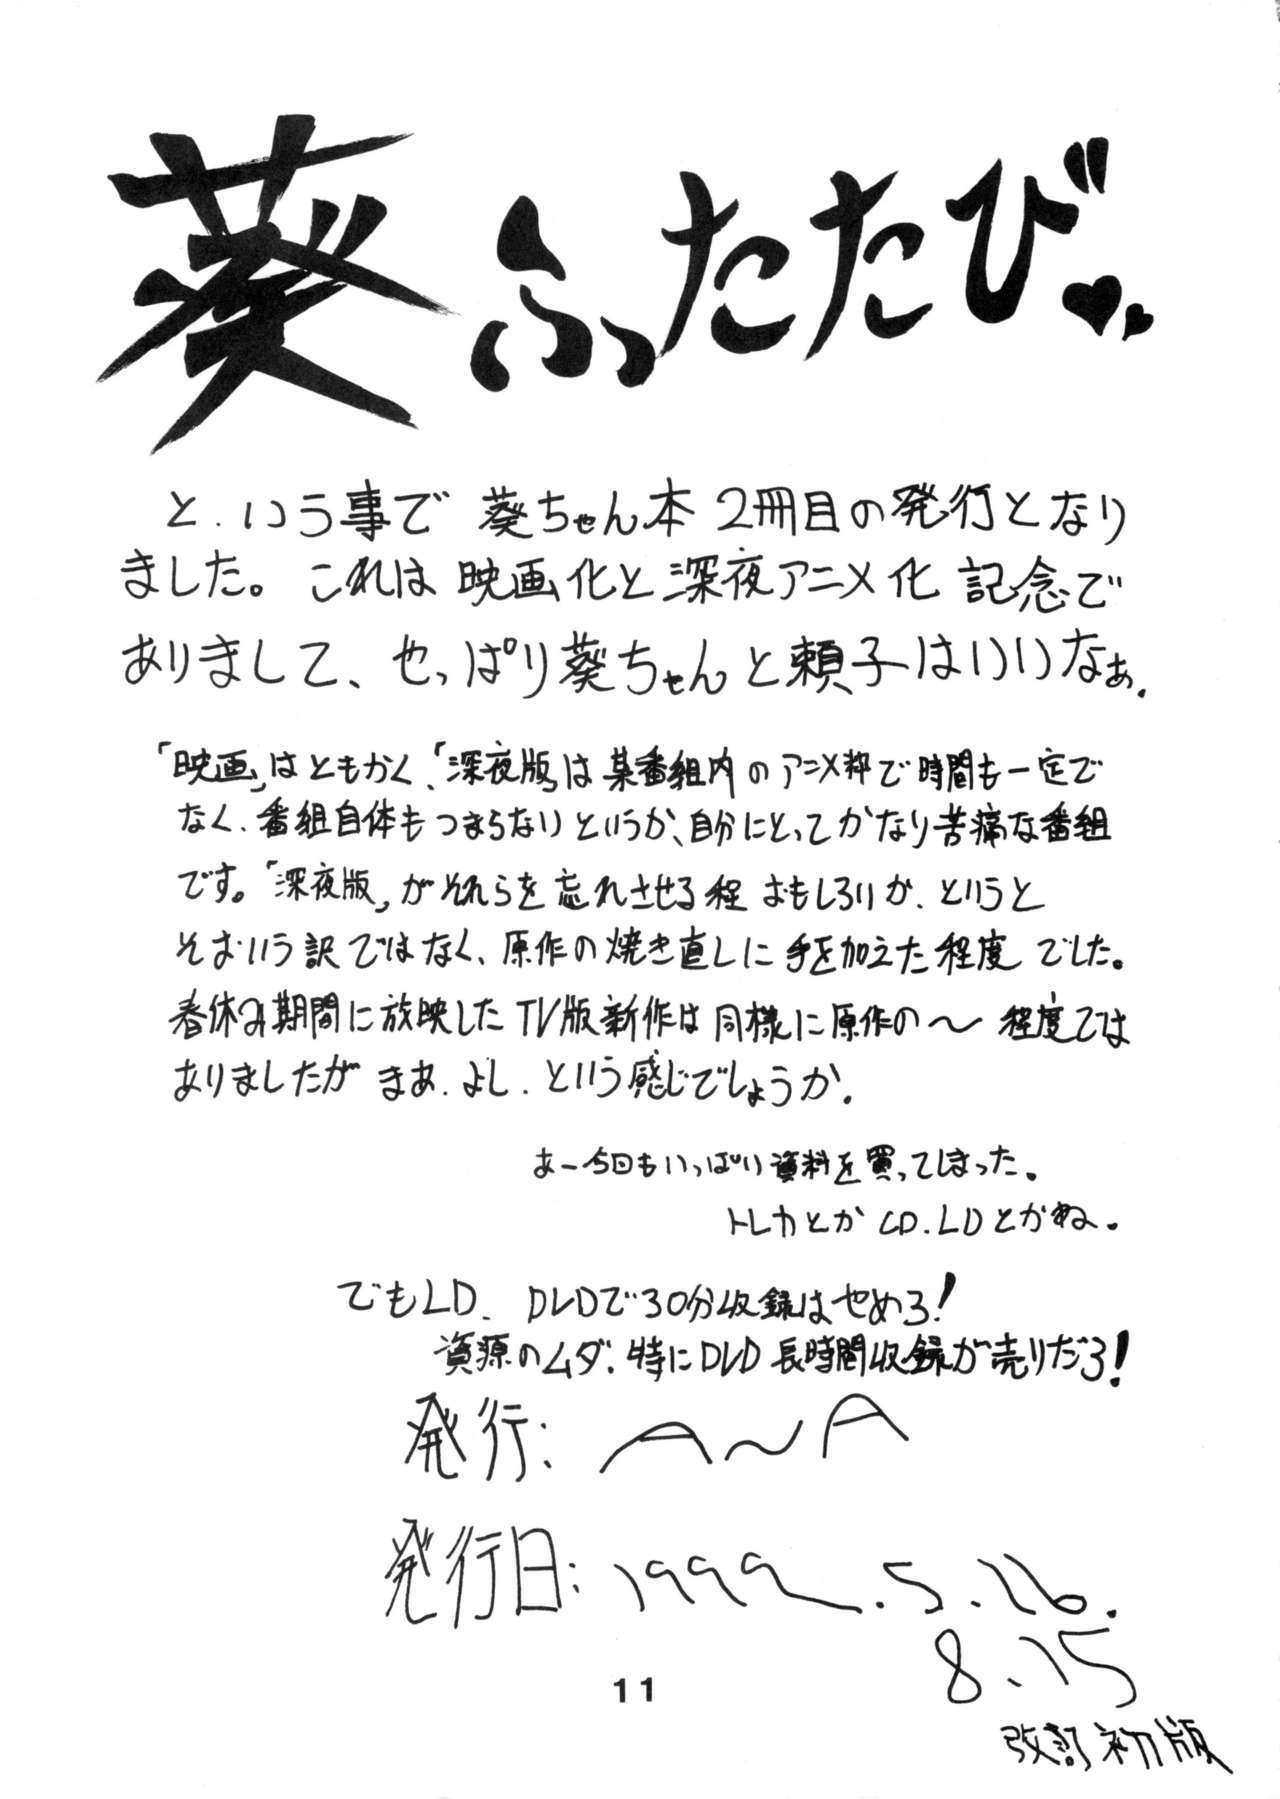 葵ふたたび
と.いう事で 葵ちゃん本 2冊目の発行となり
ました。これは映画化と深夜アニメ化 記念で
ありまして、やっぱり葵ちゃんと頼子はいいなぁ.
「映画」はともかく、「深夜版」は某番組内のアニメ枠で時間も一定で
なく、番組自体もつまらないというか、自分にとってかなり苦痛な番組
です。「深夜版」がそれらを忘れさせる程おもしろいか、というと
そおいう訳ではなく、原作の焼き直しに手を加えた程度でした。
春休み期間に放映したTV版新作は同様に原作の〜 程度では
ありましたが まあ.よし.という感じでしょうか.
あー今回もいっぱい資料を買ってしまった。
トレカとかCD.LDとかね。
でもLD. DVDで30分収録はやめろ!
資源のムダ.特にDVD長時間収録が売りだろ!
発行: A〜A
発行日: 1999.5.16.
8.15
改訂初版
11